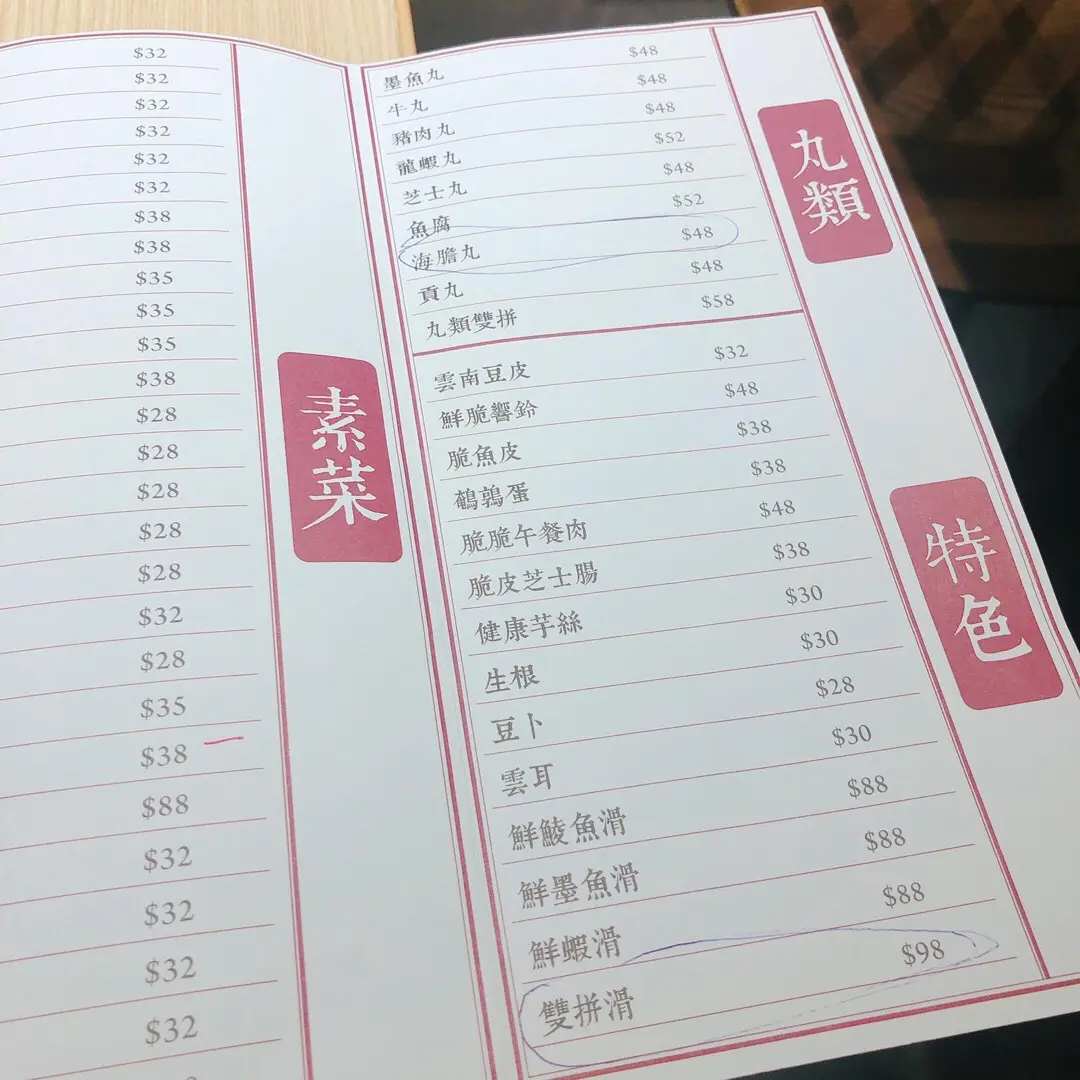 $32
$32
$32
$32
$32
$32
$38
$38
$35
$35
$35
$38
$28
$28
$28
$28
$28
$32
$28
$35
$38
$88
$32
$32
$32
$32
素菜
丸類
墨魚丸 $48
牛丸 $48
豬肉丸 $48
龍蝦丸 $52
芝士丸 $48
魚腐 $52
海膽丸 $48
貢丸 $48
丸類雙拼 $58
特色
雲南豆皮 $32
鮮脆響鈴 $48
脆魚皮 $38
鵪鶉蛋 $38
脆脆午餐肉 $48
脆皮芝士腸 $38
健康芋絲 $30
生根 $30
豆卜 $28
雲耳 $30
鮮鯪魚滑 $88
鮮墨魚滑 $88
鮮蝦滑 $88
雙拼滑 $98